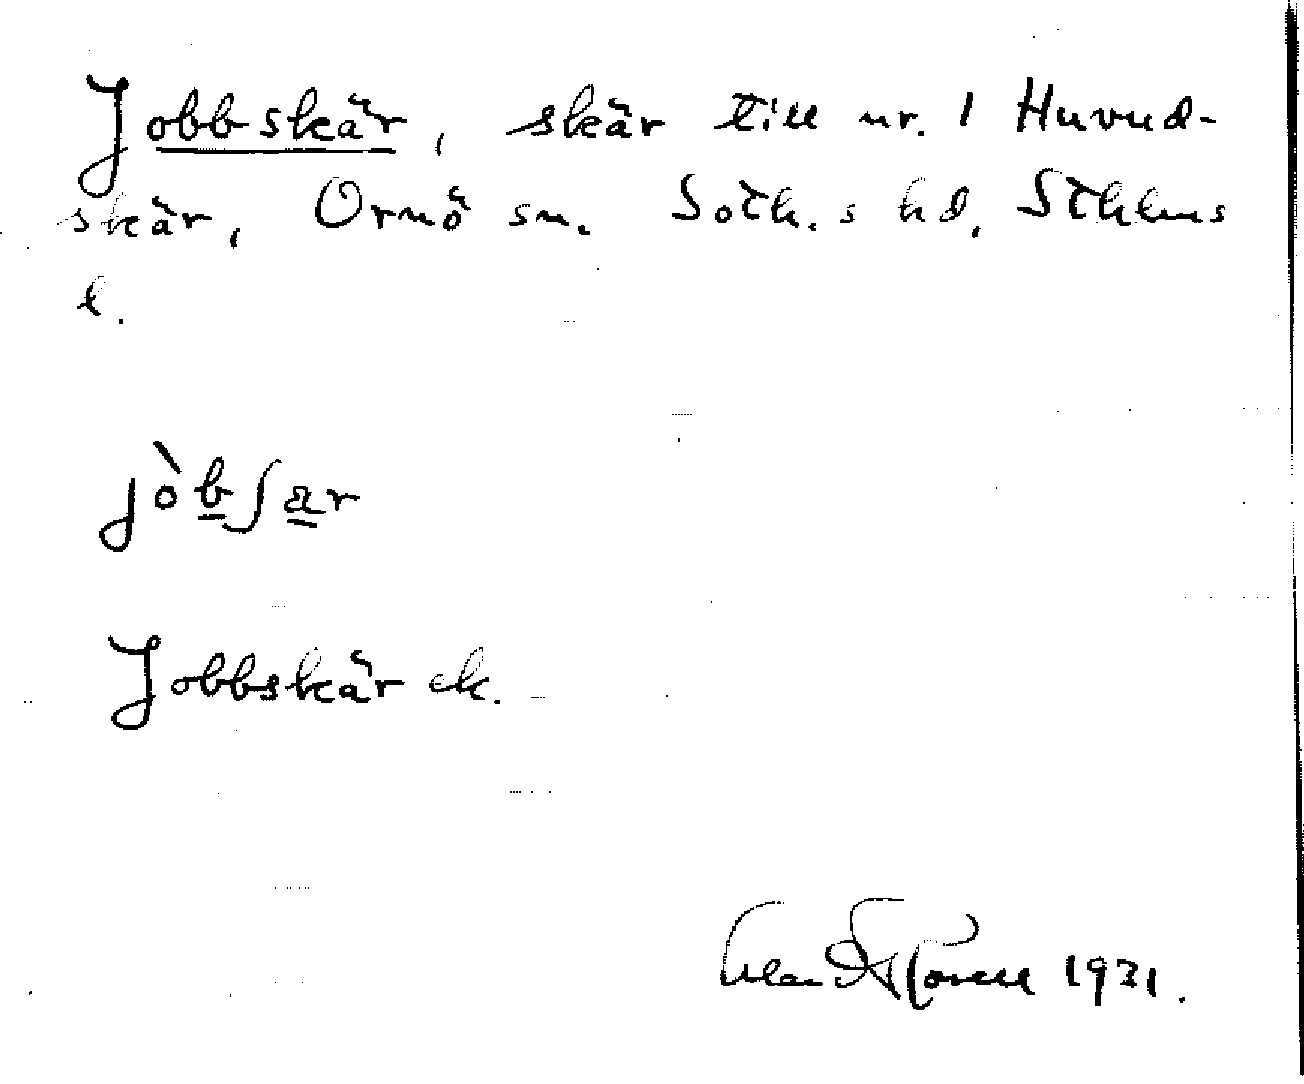 Jobbskär, skär till nr. 1 Huvud-
skär, Ornö sn. Soth.s hd, Sthlms
l.
jòbʃär
Jobbskär ek.
1931.